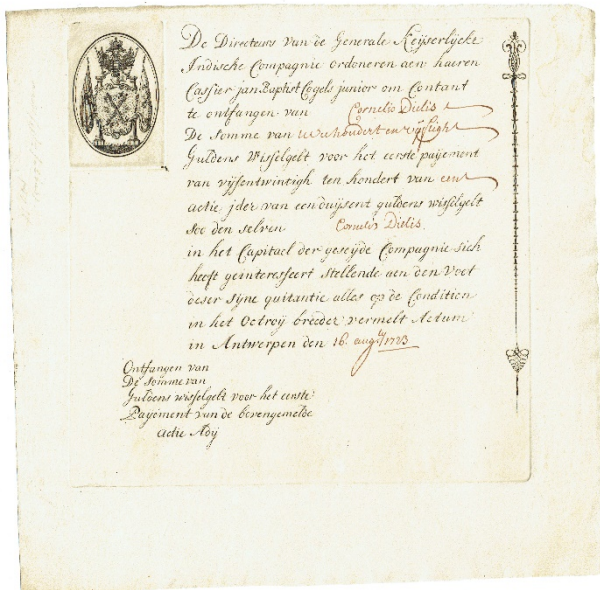 De Directeurs van de Generale Keijserlijcke
Indische Compagnie ordoneren aen haeren
Cassier jan Baptist Cogels junior om Contant
te ontfangen van Cornelis Dielis
De somme van
Guldens Wisselgelt voor het eerste paijement
van vijfentwintigh ten hondert van eene
actie jder van een duijsent guldens wisselgelt
soo den selven Cornelis Dielis.
in het Capitael der geseijde Compagnie sich
heeft geinteresseert stellende aen den Voet
deser sijne quitantie alles op de Conditien
in het Octroij breeder vermelt Actum
in Antwerpen den 16. augsti 1723
Ontfangen van
De somme van
Guldens wisselgelt voor het eerste
Paijement van de bovengemelde
actie Adij